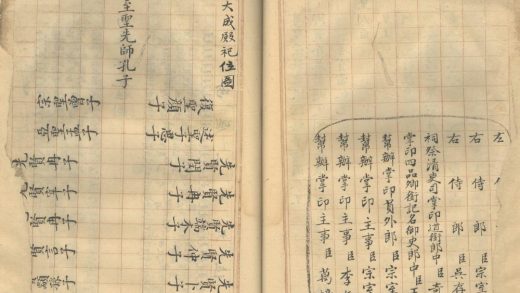 左
右侍郎臣吳存
右侍郎臣
祠祭清吏司掌印道銜郎中臣奇
掌印四品卿銜記名御史郎中臣王
幫辦掌印員外郎臣宗室
幫辦掌印主事臣宗室
幫辦掌印主事臣李
幫辦掌印主事臣萬
大成殿祀位圖
至聖先師孔子
復聖顏子
述聖子思子
先賢閔子
先賢冉子
先賢端木子
先賢仲子
先賢卜子
宗聖曾子
亞聖孟子
先賢冉子
先賢宰子
先賢冉子